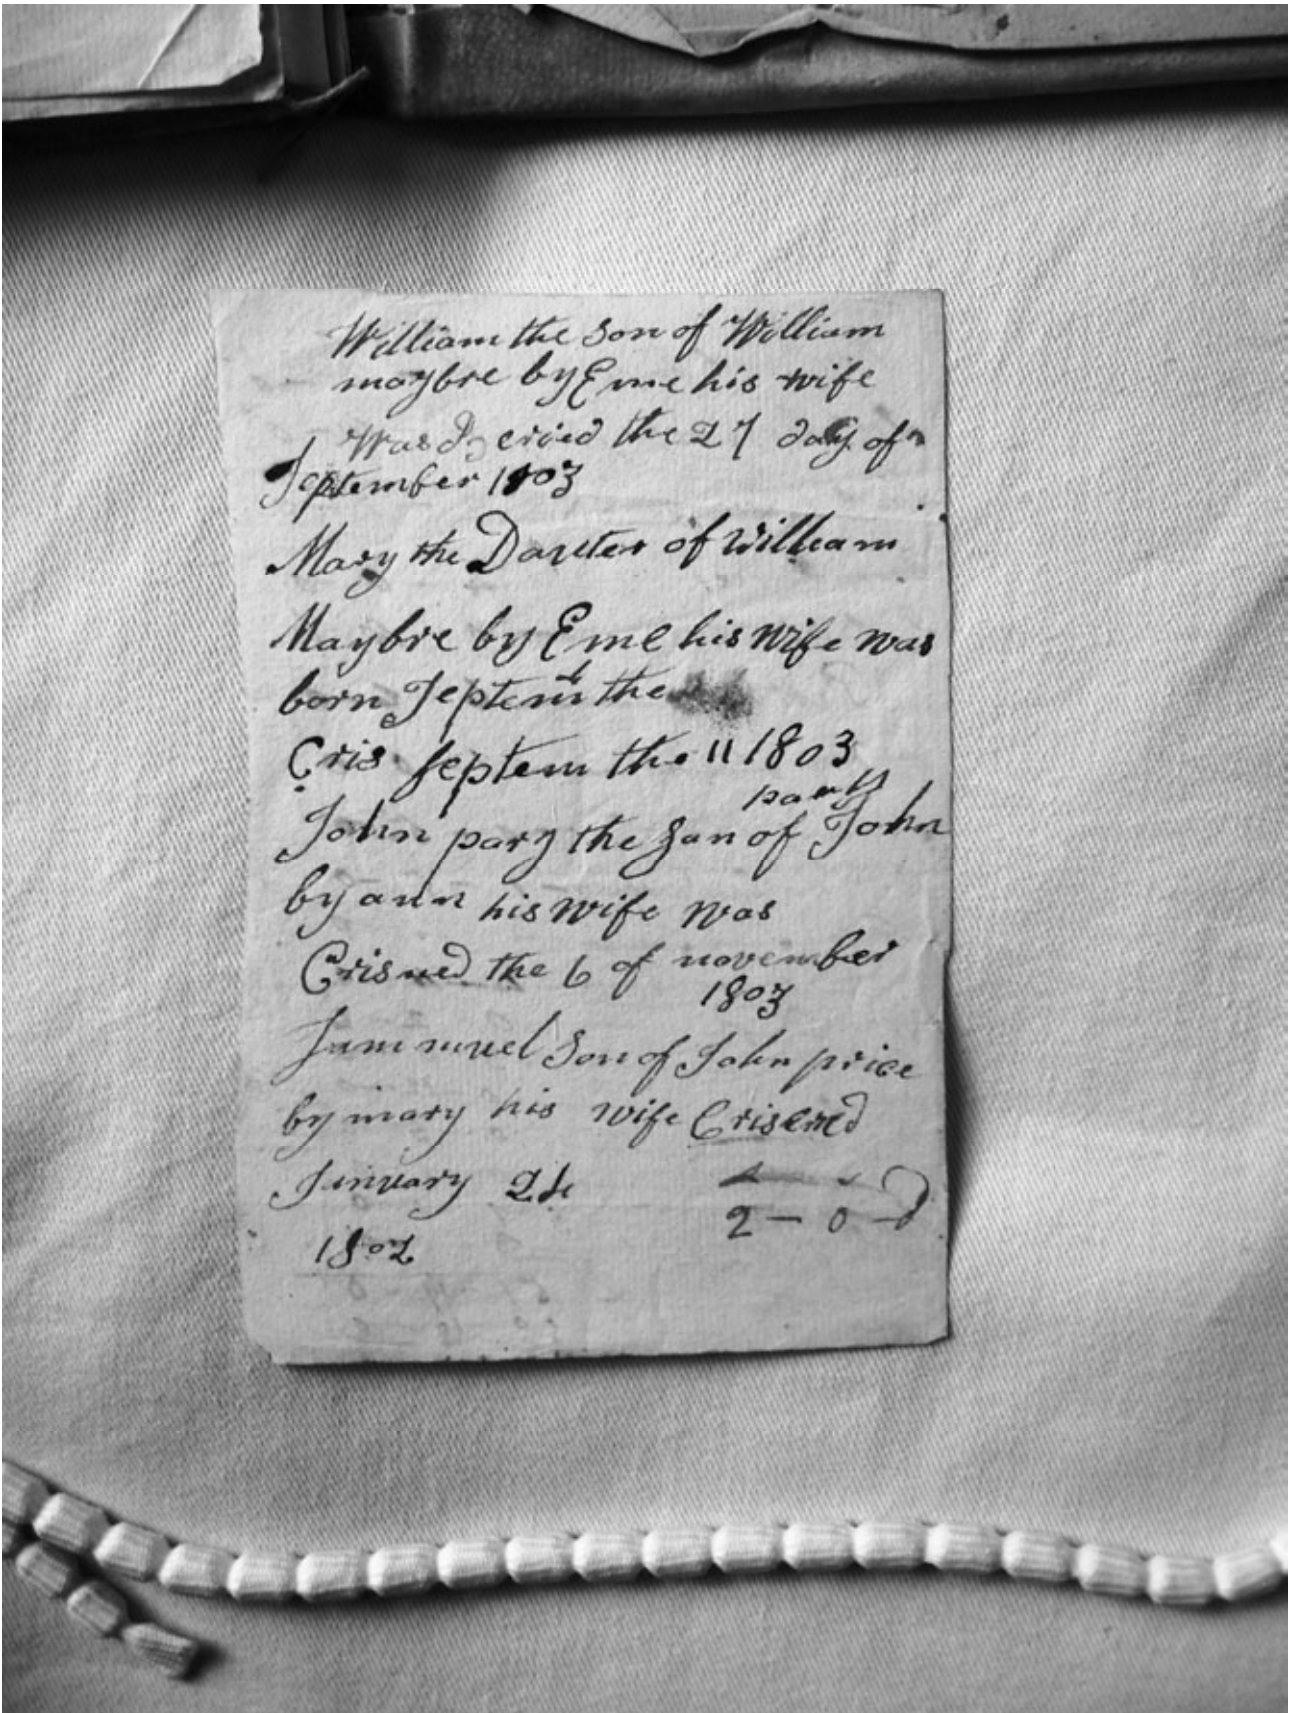 William the Son of William
maybre by Eme his wife
Was the 27 day of
September 1803
Mary the Dautter of William
Maybre by Eme his wife was
born Septemb the
Cris Septem the 11 1803
John pary the San of John
by ann his wife was
Crisned the 6 of november
1803
Sammuel Son of John price
by mary his wife Crisened
Jenuary 24
2 - 0 - d
1802